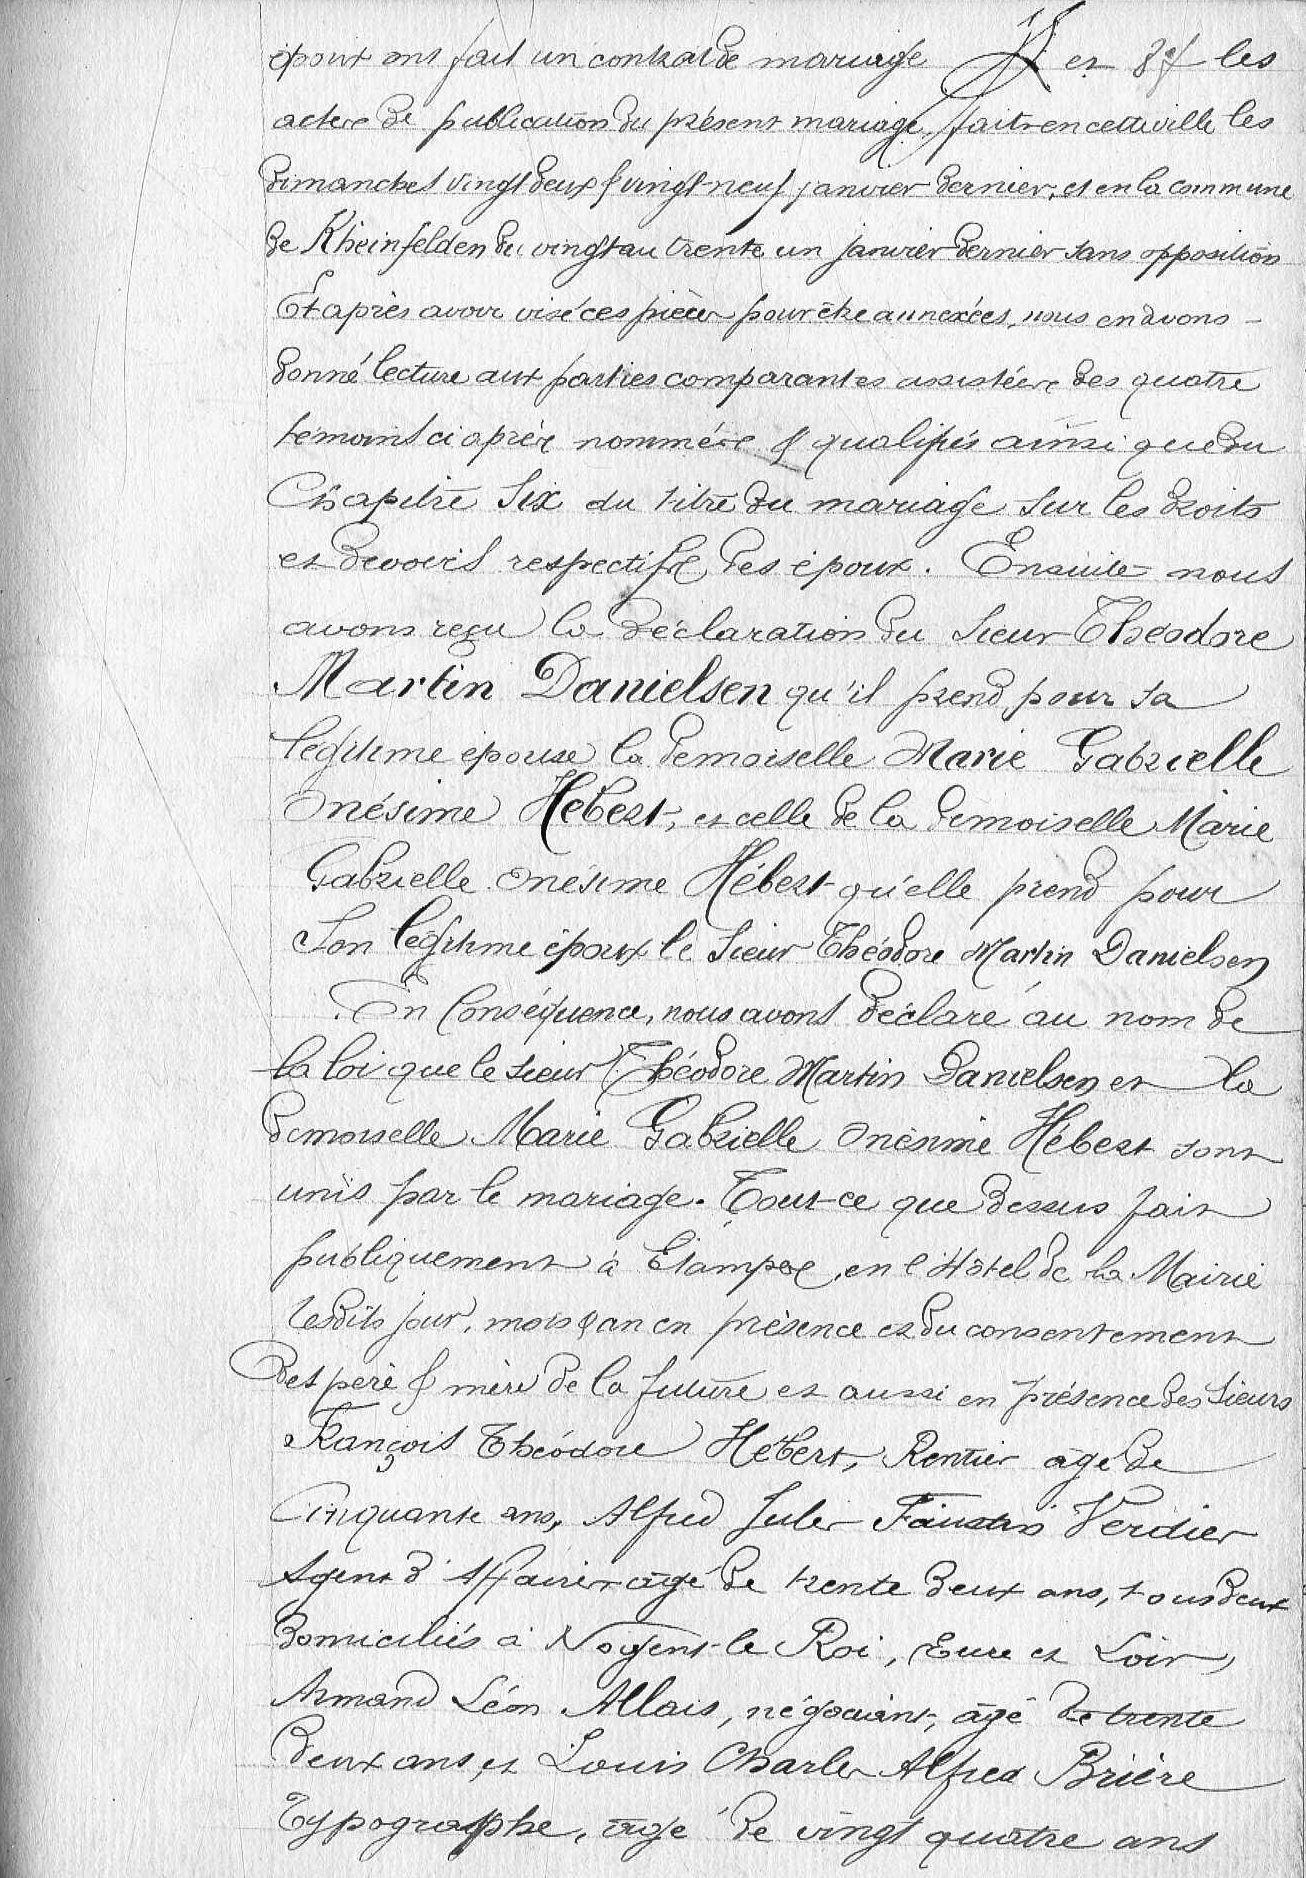 époux ont fait un contrat de mariage et 8° les
actes de publication du présent mariage, faits en cette ville les
dimanches vingt deux & vingt-neuf janvier dernier, et en la commune
de Rheinfelden du vingt au trente un janvier dernier sans opposition
Et après avoir visé ces pièces pour être annexées, nous en avons
donné lecture aux parties comparantes assistées des quatre
témoins ci après nommés & qualifiés ainsi que du
Chapitre Six du titre du mariage sur les droits
et devoirs respectifs des époux. Ensuite nous
avons reçu la déclaration du Sieur Théodore
Martin Danielsen qu'il prend pour sa
légitime épouse la demoiselle Marie Gabrielle
Onésime Hébert, et celle de la demoiselle Marie
Gabrielle Onésime Hébert qu'elle prend pour
Son légitime époux le Sieur Théodore Martin Danielsen
En Conséquence, nous avons déclaré au nom de
la loi que le sieur Théodore Martin Danielsen et la
demoiselle Marie Gabrielle Onésime Hébert sont
unis par le mariage. Tout ce que dessus fait
publiquement à Etampes, en l'Hôtel de la Mairie
lesdits jour, mois & an en présence et du consentement
des père & mère de la future et aussi en présence des Sieurs
François Théodore Hébert, Rentier âgé de
Cinquante ans, Alfred Jules Faustin Verdier
Agent d'Affaires âgé de trente deux ans, tous deux
domiciliés à Nogent-le Roi, Eure et Loir,
Armand Léon Allais, négociant, âgé de trente
deux ans, et Louis Charles Alfred Brière
Typographe, âgé de vingt quatre ans